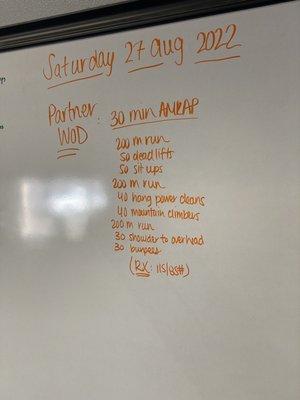 Saturday 27 aug 2022
Partner : 30 min AMRAP
WOD
200 m run
50 deadlifts
50 sit ups
200 m run
40 hang power cleans
40 mountain climbers
200 m run
30 shoulder to overhead
30 burpees
(RX: 115/85#)